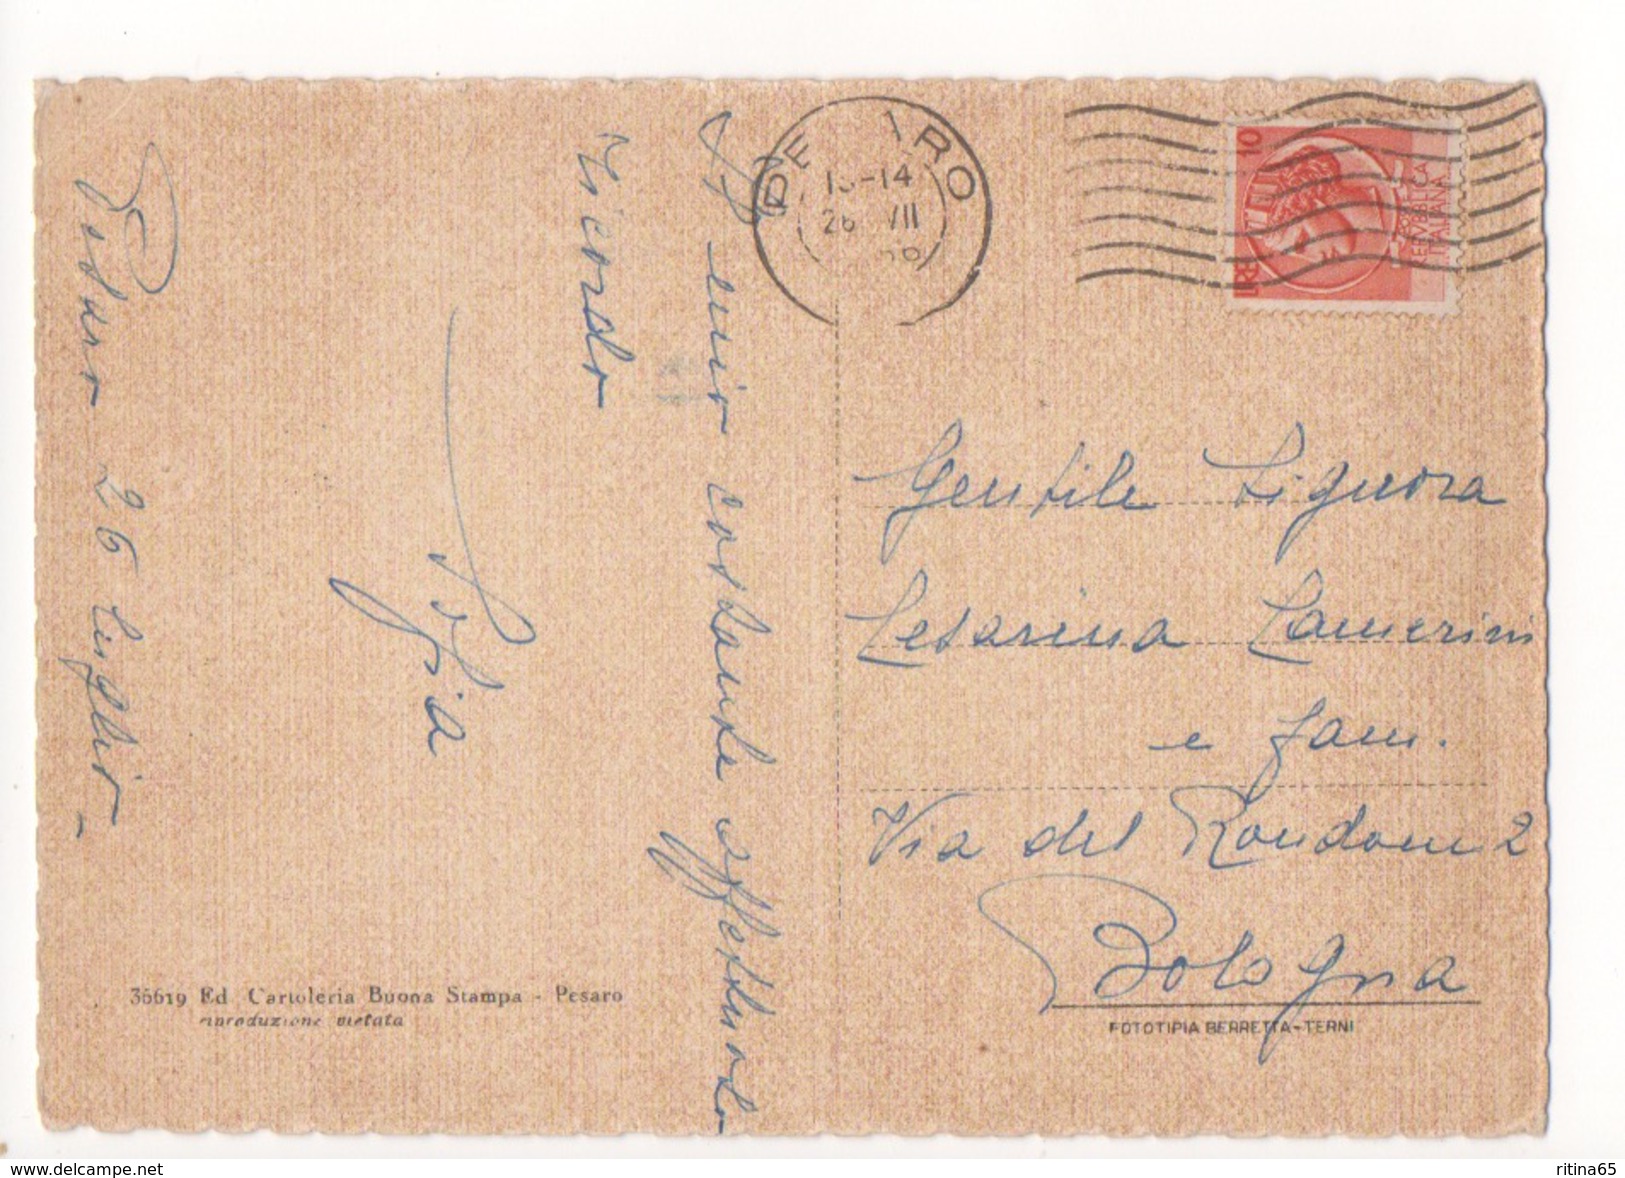 Il mio costante affettuoso
ricordo
Sofia
Pesaro 26 luglio -
36619 Ed Cartoleria Buona Stampa - Pesaro
riproduzione vietata
PE ARO
13-14
26 VII
LIRE 10
REPVBBLICA
ITALIANA
Gentile Signora
Cesarina Camerini
e fam.
Via del Rondone 2
Bologna
FOTOTIPIA BERRETTA-TERNI
www.delcampe.net
ritina65